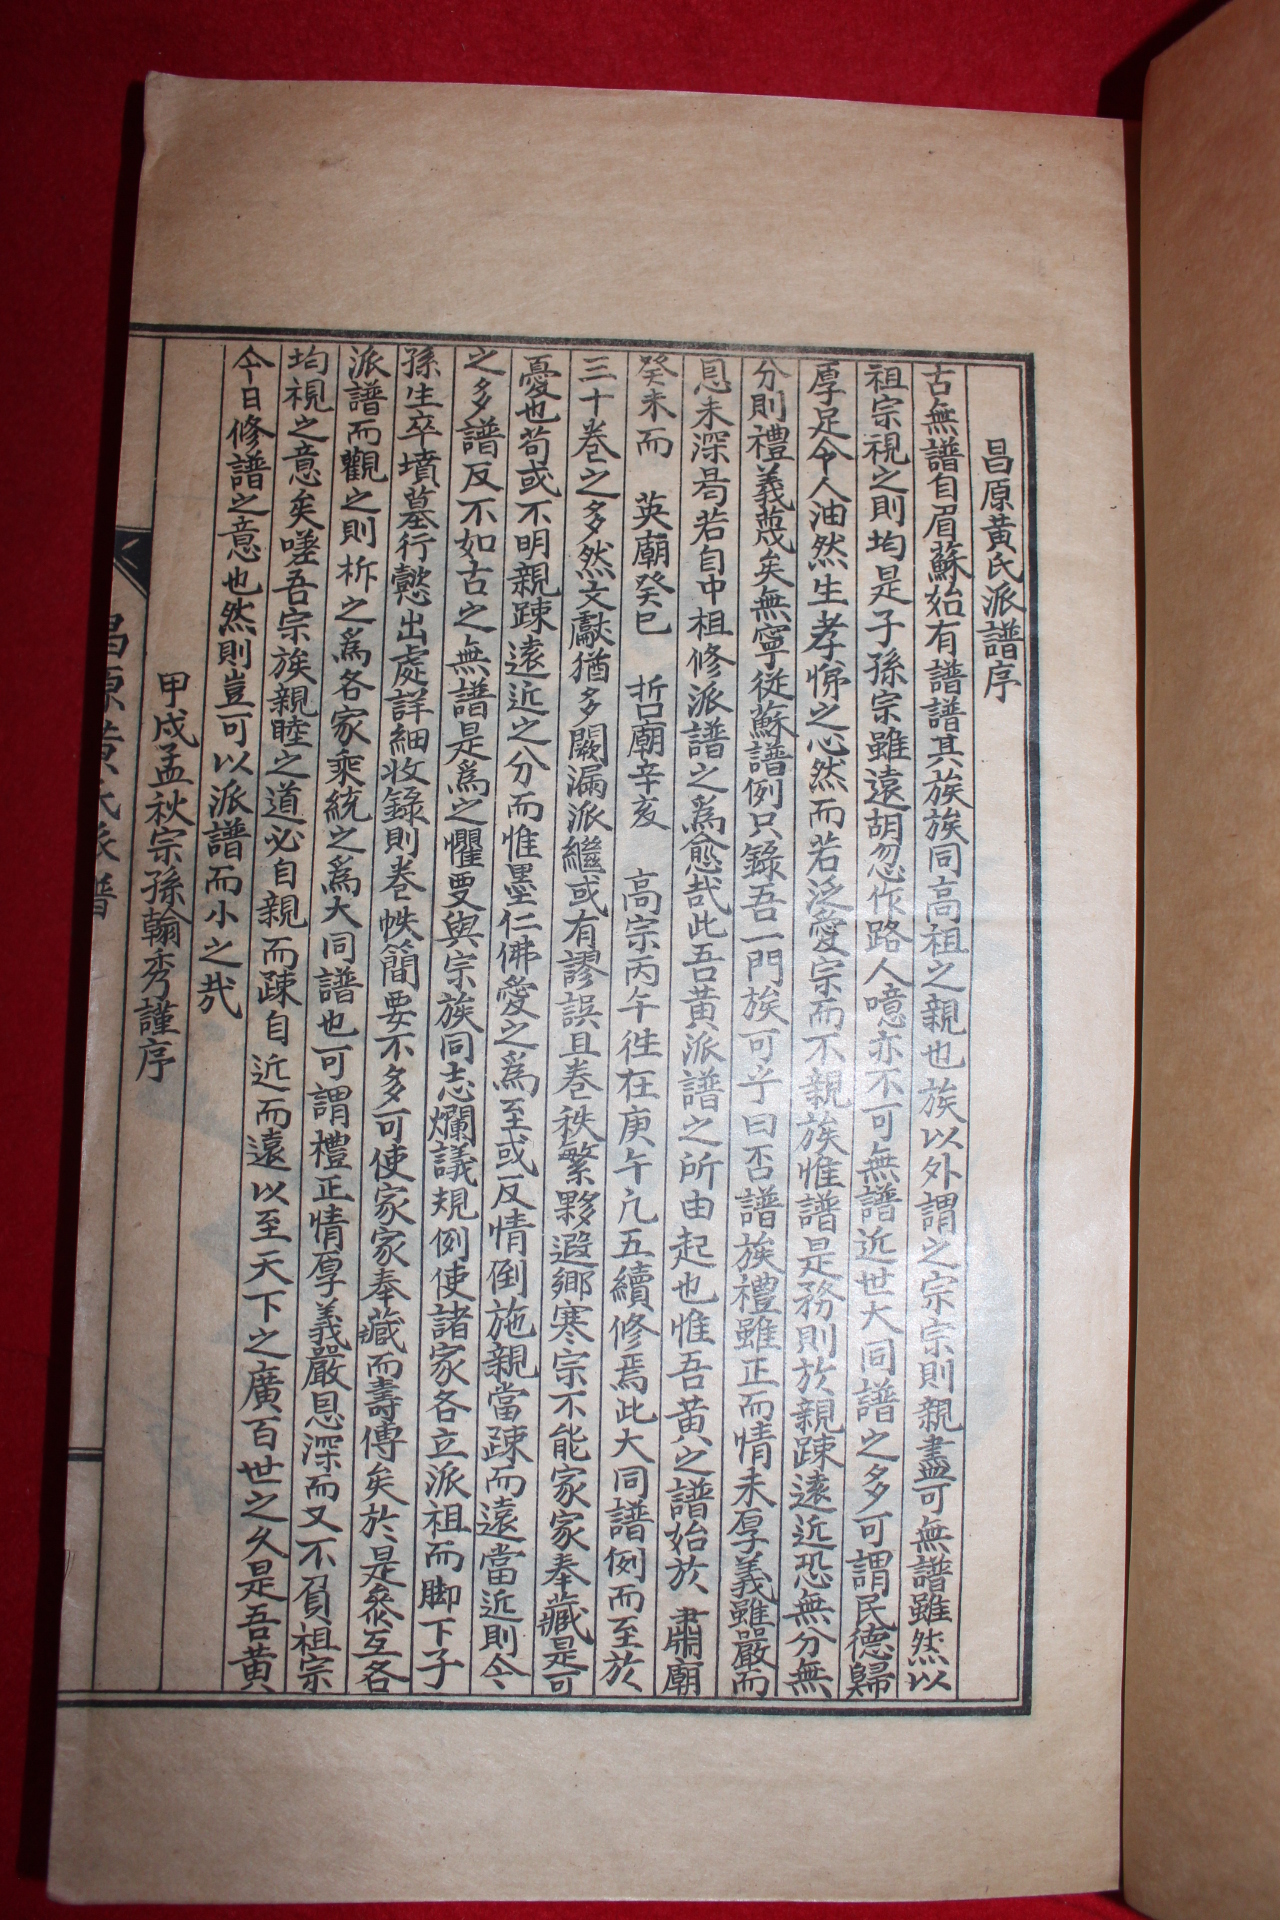 昌原黃氏派譜序
古無譜自眉蘇始有譜譜其族族同高祖之親也族以外謂之宗宗則親盡可無譜雖然以
祖宗視之則均是子孫宗雖遠胡忽作路人噫亦不可無譜近世大同譜之多可謂民德歸
厚足令人油然生孝悌之心然而若泛愛宗而不親族惟譜是務則於親踈遠近恐無分無
分則禮義蔑矣無寧從蘇譜例只錄吾一門族可乎曰否譜族禮雖正而情未厚義雖嚴而
恩未深曷若自中祖修派譜之爲愈哉此吾黃派譜之所由起也惟吾黃之譜始於 肅廟
癸未而 英廟癸巳 哲廟辛亥 高宗丙午徃在庚午凢五續修焉此大同譜例而至於
三十卷之多然文獻猶多闕漏派繼或有謬誤且卷秩繁夥遐鄉寒宗不能家家奉藏是可
憂也苟或不明親踈遠近之分而惟墨仁佛愛之爲至或反情倒施親當踈而遠當近則今
之多譜反不如古之無譜是爲之懼要與宗族同志爛議規例使諸家各立派祖而脚下子
孫生卒墳墓行懿出處詳細收錄則卷帙簡要不多可使家家奉藏而壽傳矣於是叅互各
派譜而觀之則柝之爲各家乘統之爲大同譜也可謂禮正情厚義嚴恩深而又不負祖宗
均視之意矣嗟吾宗族親睦之道必自親而踈自近而遠以至天下之廣百世之久是吾黃
今日修譜之意也然則豈可以派譜而小之哉
甲戌孟秋宗孫翰秀謹序
昌原黃氏派譜